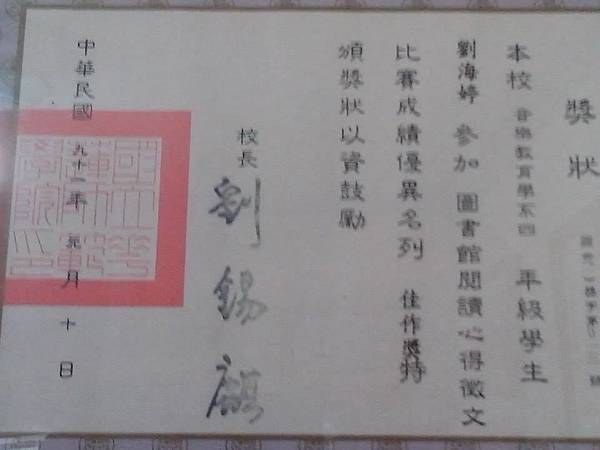 獎狀
本校 音樂教育學系四 年級學生
劉海婷 參加 圖書館閱讀心得徵文
比賽成績優異名列 佳作獎特
頒獎狀以資鼓勵
校長 劉錫麒
中華民國 九十二年 元月 十日